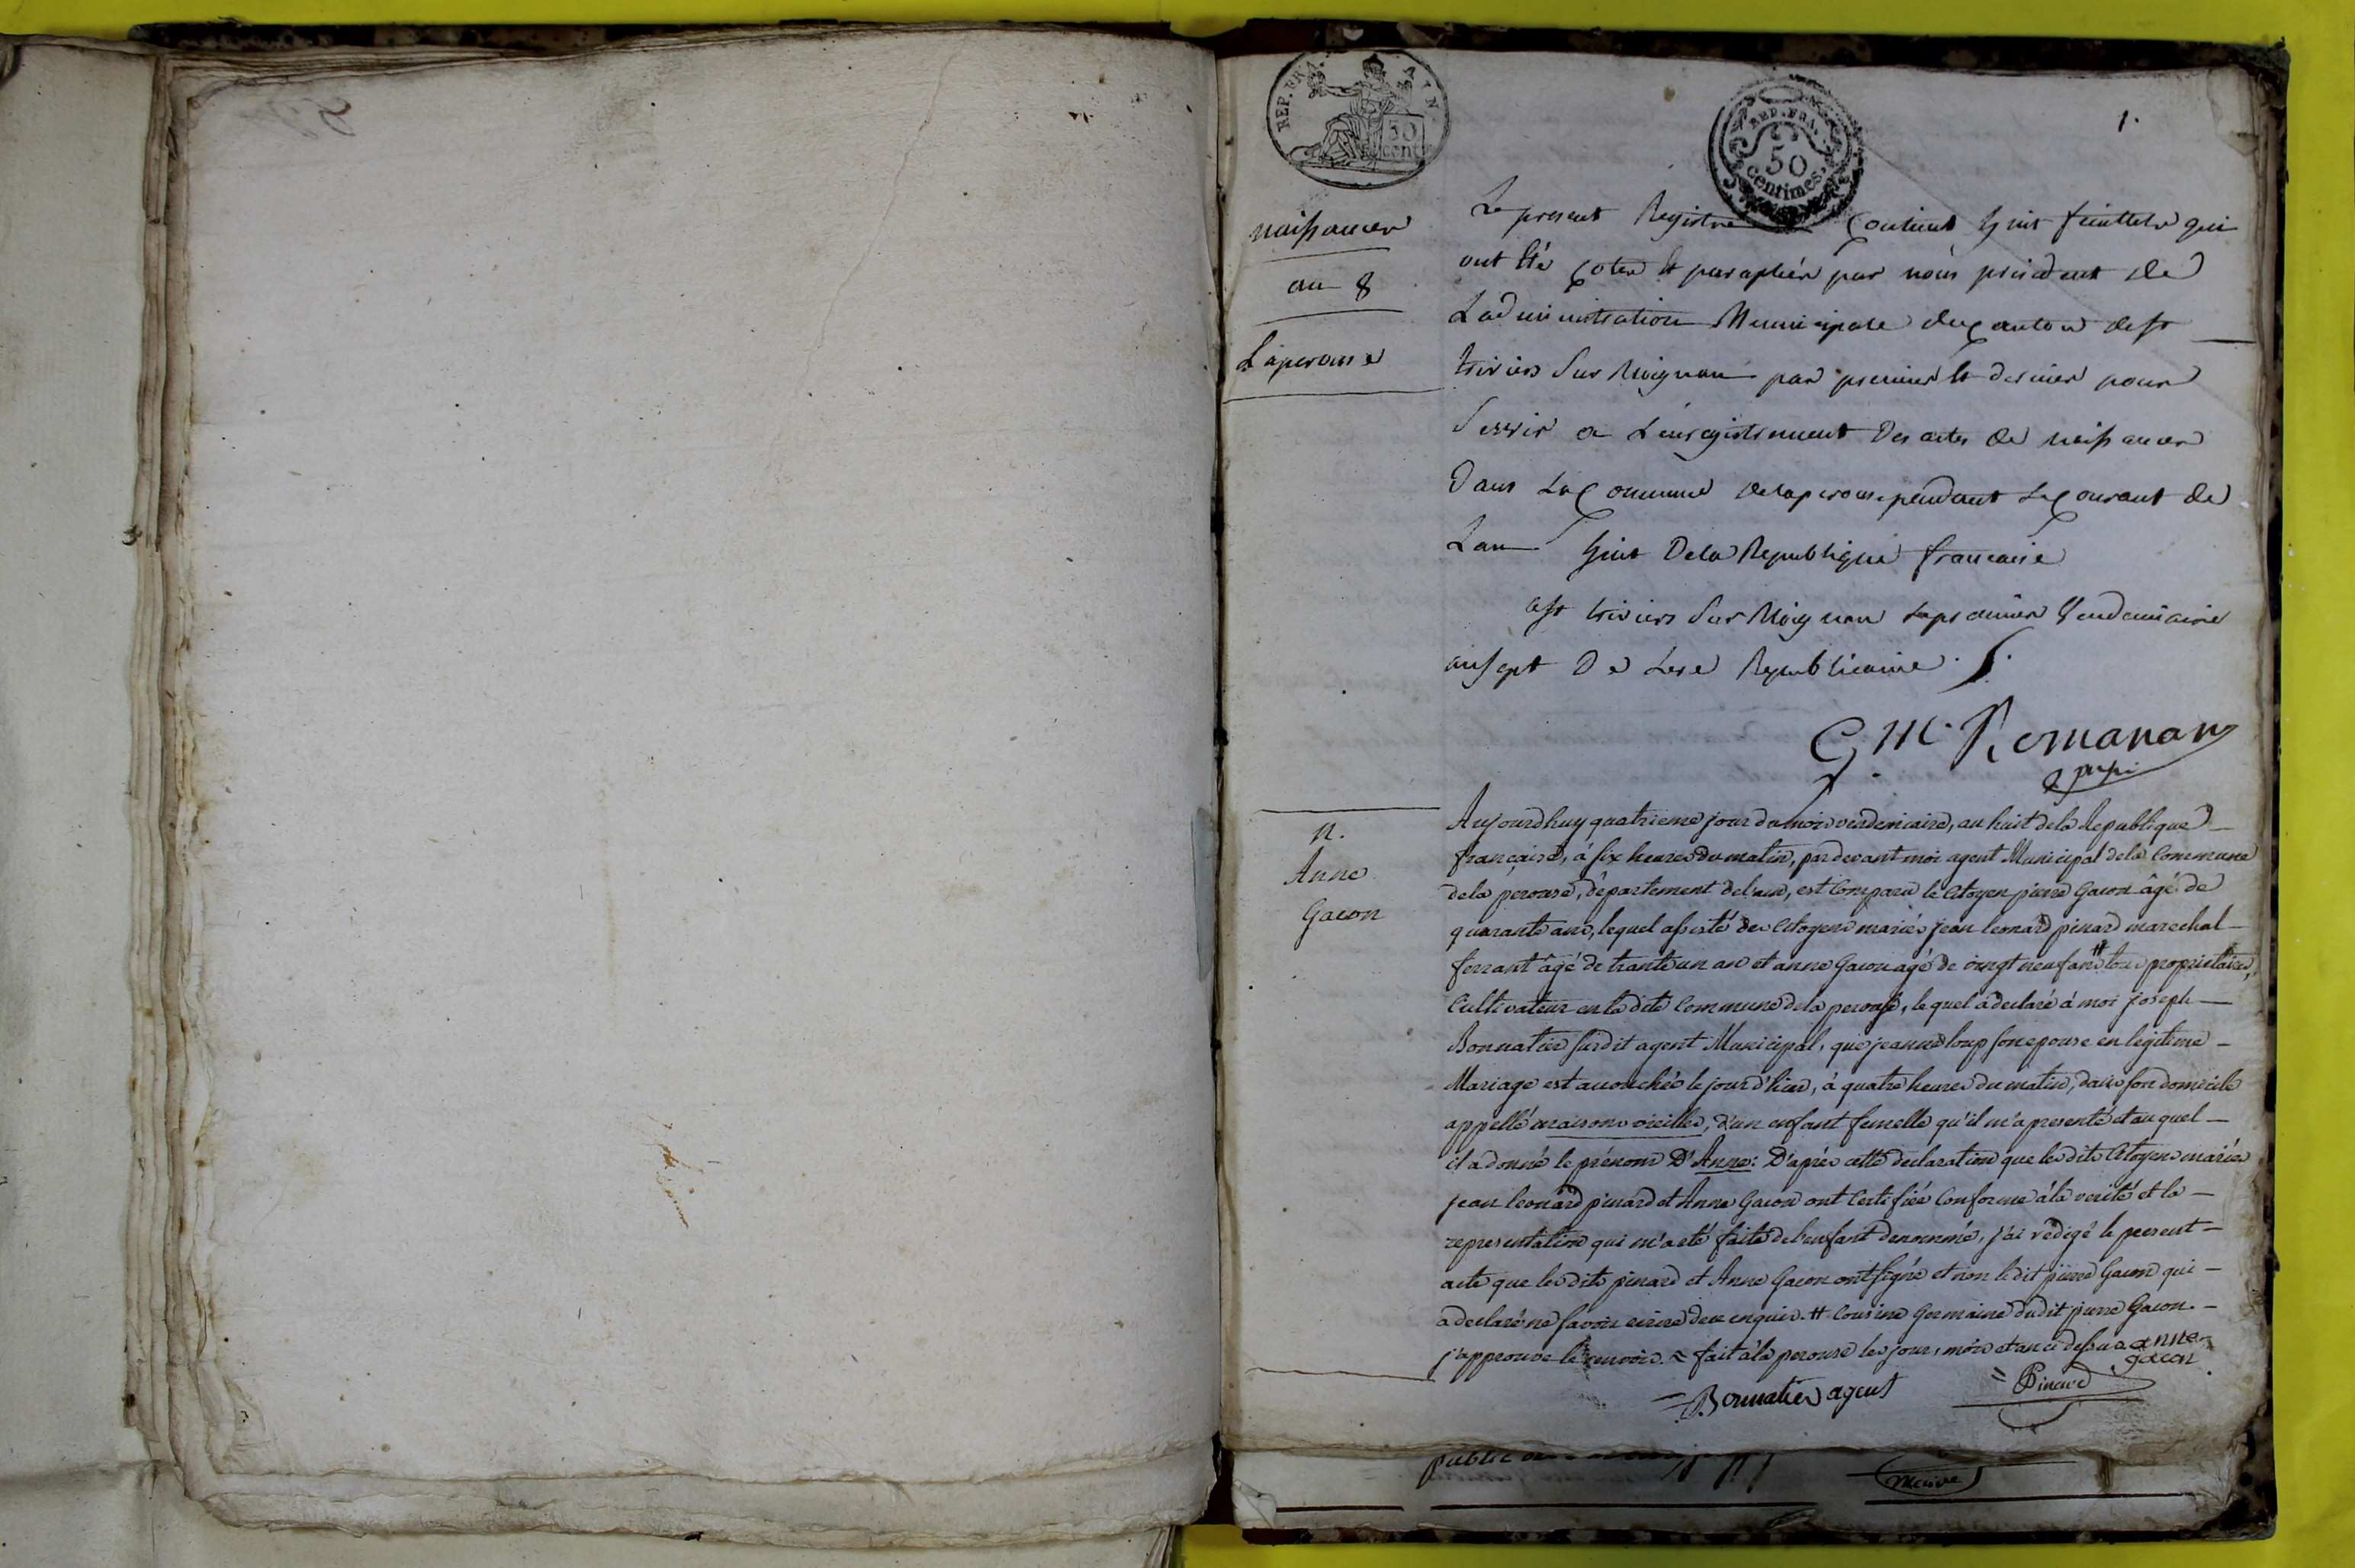 1.
REP. FRA. AIN.
50
cent
REP. FRA.
50
centimes.
naissances
an 8
Laperouse
Le present Registre Contient huit feuillets qui
ont été cotes et paraphés par nous président de
Ladministration Municipale du Canton de st
triviers sur Moignan par premier et dernier pour
servir a Lenregistrement Des actes de naissances
Dans La Commune delaperouse pendant Le Courant de
Lan huit De la Republique francaise
a st triviers sur Moignan Le premier Vendemiaire
an sept De Lere Republicaine
G. M. Romanan
n.
Anne
Gacon
Aujourdhuy quatrieme jour du mois vendemiaire, an huit de la Republique
française, à six heures du matin, pardevant moi agent Municipal de la Commune
dela perouse, département de l'ain, est Comparu le Citoyen pierre Gacon âgé de
quarante ans, lequel assisté des Citoyens mariés jean leonard pinard marechal
ferrant âgé de trante un an et anne Gacon agé de vingt neuf ans # tous proprietaires,
Cultivateur en la dite Commune dela perouse, lequel à declaré à moi joseph
Bonnatier susdit agent Municipal, que jeanne loup son epouse en legitime
Mariage est accouchée le jour d'hier, à quatre heures du matin, dans son domicile
appellé maisons vieilles, d'un enfant femelle qu'il m'a presenté et au quel
il a donné le prénom D'Anne: D'après cette declaration que les dits Citoyens mariés
jean leonard pinard et Anne Gacon ont Certifiée Conforme à la verité et la
representation qui m'a eté faite de l'enfant denommé, j'ai rédigé le present
acte que les dits pinard et Anne Gacon ont signé et non le dit pierre Gacon qui
a declaré ne savoir ecrire de ce enquis. # Cousine Germaine dudit pierre Gacon.
j'approuve le renvoi. fait à la perouse les jour, mois et an ci dessus
anne
gacon
Bonnatier agent
Pinard
public
maire